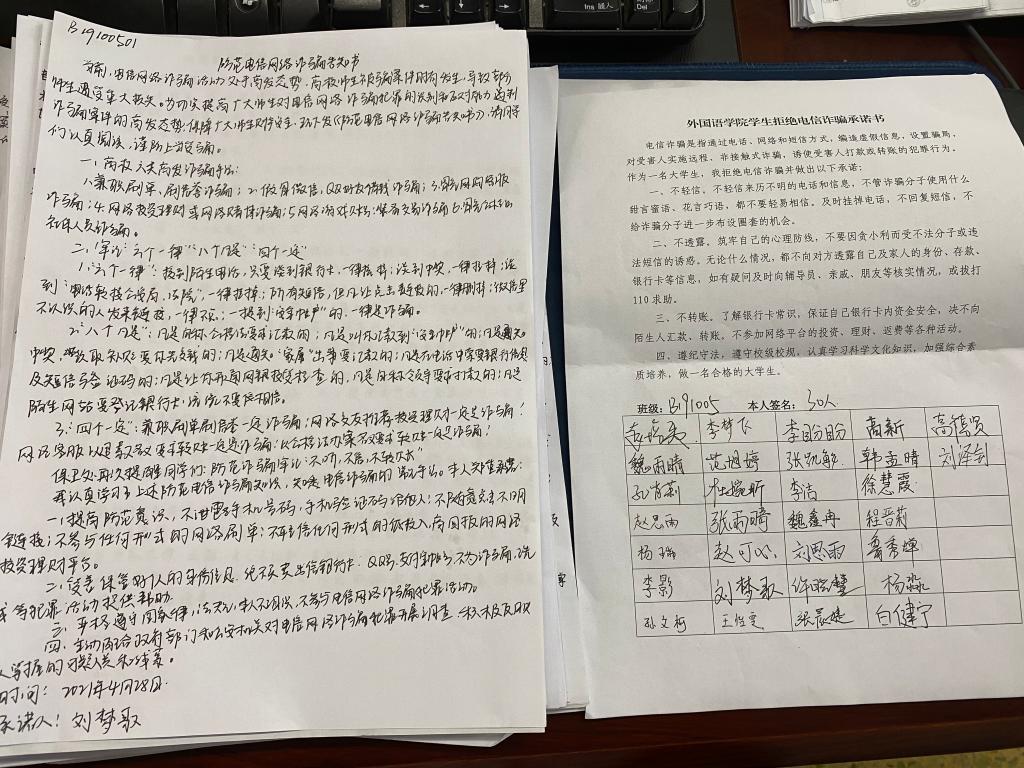 B19100501
防范电信网络诈骗告知书
当前,电信网络诈骗活动处于高发态势,高校师生被骗案件时有发生,导致部分
师生遭受重大损失。为切实提高广大师生对电信网络诈骗犯罪的识别和应对能力,遏制
诈骗案件的高发态势,保障广大师生财产安全,现下发《防范电信网络诈骗告知书》,请同学
们认真阅读,谨防上当受骗。
一、高校六大高发诈骗手法:
1.兼职刷单、刷信誉诈骗;2.假冒微信、QQ好友借钱诈骗;3.网购退款
诈骗;4.网络投资理财或网络赌博诈骗;5.网络游戏账号装备交易诈骗 6.
诈骗。
二、牢记"六个一律""八个凡是""四个一定"
1."六个一律":接到陌生电话,只要谈到银行卡,一律挂掉;谈到中奖,一律挂掉;谈
到"电话转接公安局、法院",一律挂掉;所有短信,但凡让点击链接的,一律删掉;微信里
不认识的人发来链接,一律不点;一提到"安全帐户"的,一律是诈骗。
2."八个凡是":凡是自称公检法要求汇款的;凡是叫你汇款到"安全帐户"的;凡是通知
中奖、领取补贴要你先交钱的;凡是通知"家属"出事要汇款的;凡是在电话中索要银行信息
及短信验证码的;凡是让你开通网银接受检查的,凡是自称领导要求打款的;凡是
陌生网站要登记银行卡信息,
3."四个一定":兼职刷单刷信誉一定诈骗;网络交友推荐投资理财一定是诈骗!
网络客服以退款为名要求转账一定是诈骗;以公检法办案为名要求转账一定是诈骗!
保卫处再次提醒同学们:防范诈骗牢记"不听,不信,不转账"
我认真学习了上述防范电信诈骗知识,知悉电信诈骗的常见手法。本人郑重承诺:
一、提高防范意识,不泄露手机号码、手机验证码给他人;不随意点击不明
链接;不参与任何形式的网络刷单;不轻信任何形式的低投入,高回报的网络
投资理财平台。
二、妥善保管好个人的身份信息,绝不买卖出借银行卡、QQ号、支付宝帐号,不为诈骗、洗
钱等犯罪活动提供帮助。
三、严格遵守国家法律,法规,本人不组织、不参与电信网络诈骗犯罪活动。
四、主动配合政府部门和公安机关对电信网络诈骗犯罪开展调查,积极反映
人掌握的可疑人员和线索。
时间: 2021年4月28日
承诺人:刘梦歌
外国语学院学生拒绝电信诈骗承诺书
电信诈骗是指通过电话、网络和短信方式,编造虚假信息,设置骗局,
对受害人实施远程、非接触式诈骗,诱使受害人打款或转账的犯罪行为。
作为一名大学生,我拒绝电信诈骗并做出以下承诺:
一、不轻信。不轻信来历不明的电话和信息,不管诈骗分子使用什么
甜言蜜语、花言巧语,都不要轻易相信。及时挂掉电话,不回复短信,不
给诈骗分子进一步布设圈套的机会。
二、不透露。筑牢自己的心理防线,不要因贪小利而受不法分子或违
法短信的诱惑。无论什么情况,都不向对方透露自己及家人的身份、存款、
银行卡等信息,如有疑问及时向辅导员、亲戚、朋友等核实情况,或拨打
110 求助。
三、不转账。了解银行卡常识,保证自己银行卡内资金安全,决不向
陌生人汇款、转账。不参加网络平台的投资、理财、返费等各种活动。
四、遵纪守法,遵守校级校规,认真学习科学文化知识,加强综合素
质培养,做一名合格的大学生。
班级: B191005 本人签名: 30人
李梦飞 李盼盼 高新
魏雨晴 范旭婷 张凯敏 韩孟晴 刘泽钊
孙肖莉 李洁 徐慧霞
赵思雨 张雨晴 魏鑫冉 程晋莉
杨瑞 赵可心 刘思雨
李影 刘梦歌 杨淼
孙文柯 白健宁
Ins 插入
Del